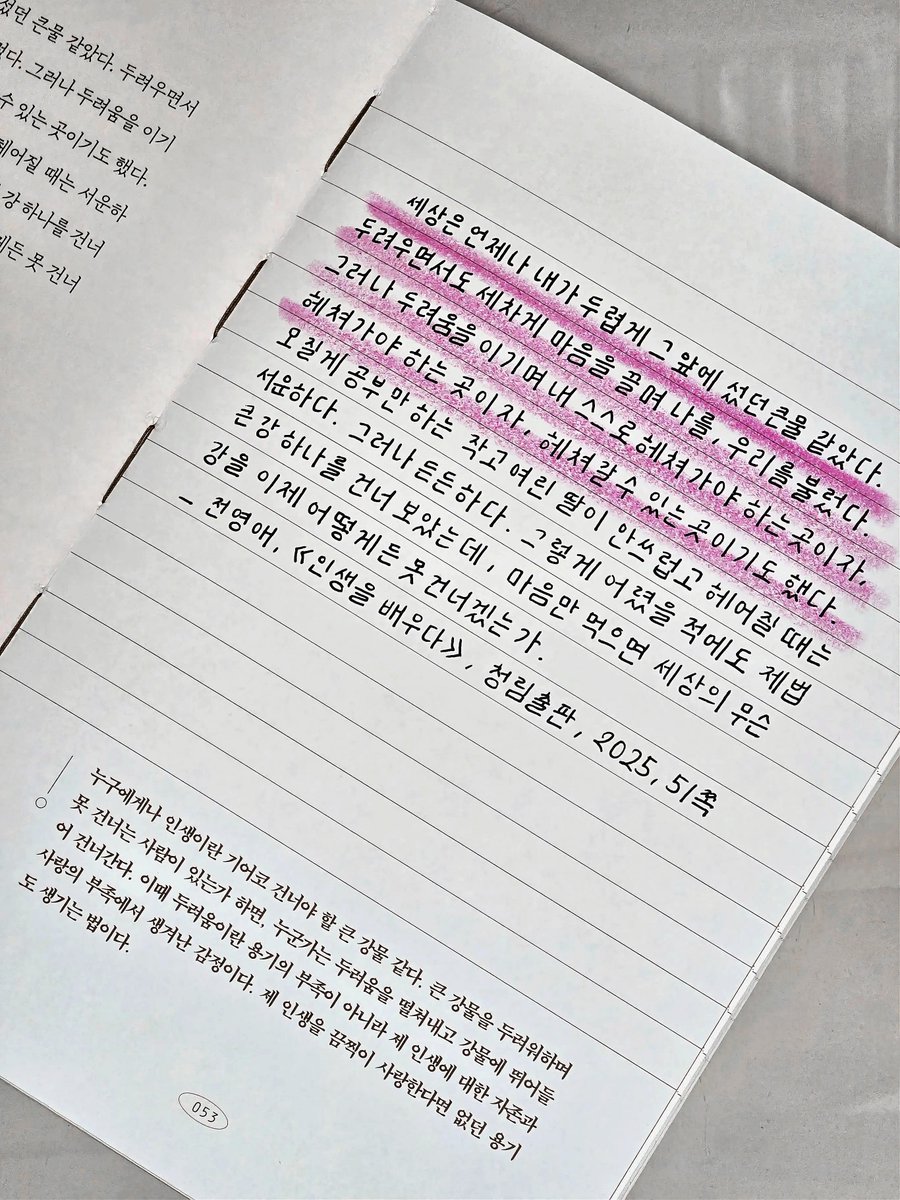 섰던 큰물 같았다. 두려우면서
그러나 두려움을 이기
수 있는 곳이기도 했다.
헤어질 때는 서운하
강 하나를 건너
못 건너
세상은 언제나 내가 두렵게 그 앞에 섰던 큰물 같았다.
두려우면서도 세차게 마음을 끌며 나를, 우리를 불렀다.
그러나 두려움을 이기며 내 스스로 헤쳐가야 하는 곳이자,
헤쳐가야 하는 곳이자, 헤쳐갈 수 있는 곳이기도 했다.
오질게 공부만 하는 작고 여린 딸이 안쓰럽고 헤어질 때는
서운하다. 그러나 든든하다. 그렇게 어렸을 적에도 제법
큰 강 하나를 건너 보았는데, 마음만 먹으면 세상의 무슨
강을 이제 어떻게든 못 건너겠는가.
- 전영애, 《인생을 배우다》, 청림출판, 2025, 51쪽
누구에게나 인생이란 기어코 건너야 할 큰 강물 같다. 큰 강물을 두려워하며
못 건너는 사람이 있는가 하면, 누군가는 두려움을 떨쳐내고 강물에 뛰어들
어 건너간다. 이때 두려움이란 용기의 부족이 아니라 제 인생에 대한 자존과
사랑의 부족에서 생겨난 감정이다. 제 인생을 끔찍이 사랑한다면 없던 용기
도 생기는 법이다.
053